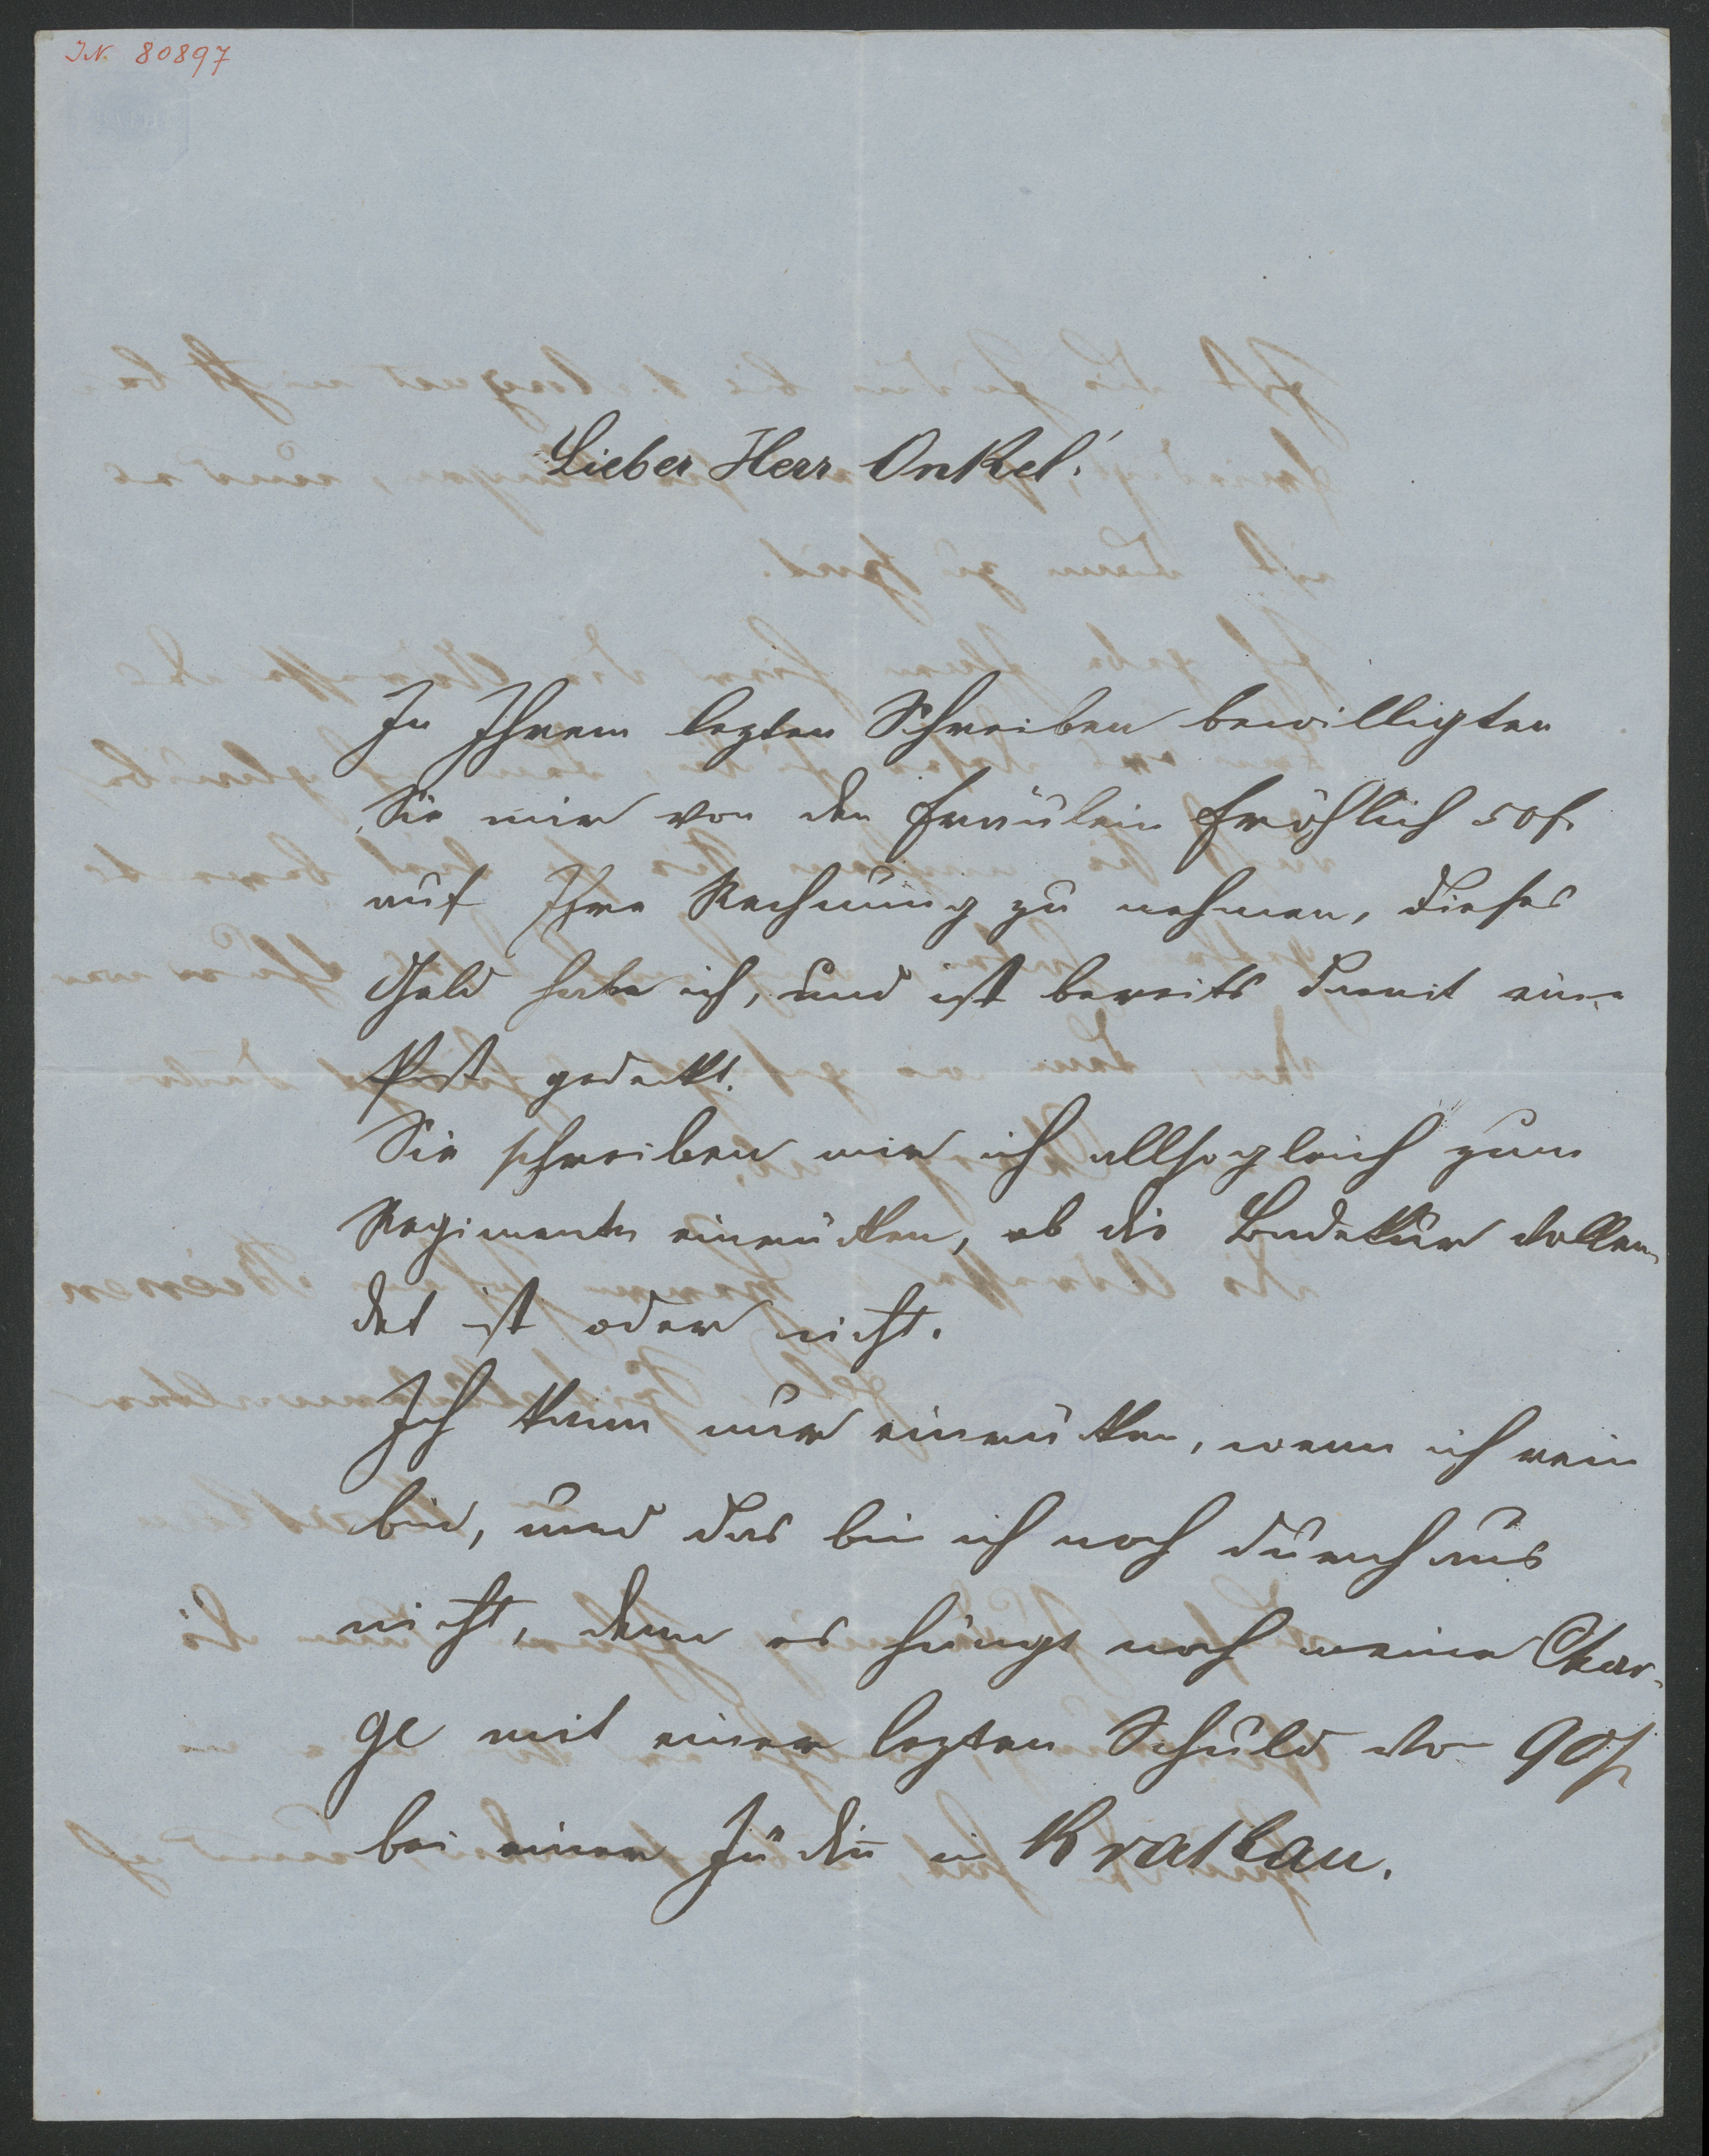 I.N. 80897
Lieber Herr Onkel!
In Ihrem lezten Schreiben bewilligten
Sie mir von den Fräulein Fröhlich 50 f.
auf Ihre Rechnung zu nehmen, dieses
Geld habe ich, und ist bereits damit eine
Post gedeckt.
Sie schreiben mir ich allsogleich zum
Regimente einrücken, ob die Badekur vollen-
det ist oder nicht.
Ich kann nur einrücken, wenn ich rein
bin, und das bin ich noch durchaus
nicht, denn es hängt noch meine Char-
ge mit einer lezten Schuld von 90 f
bei einer Jüdin in Krakau.